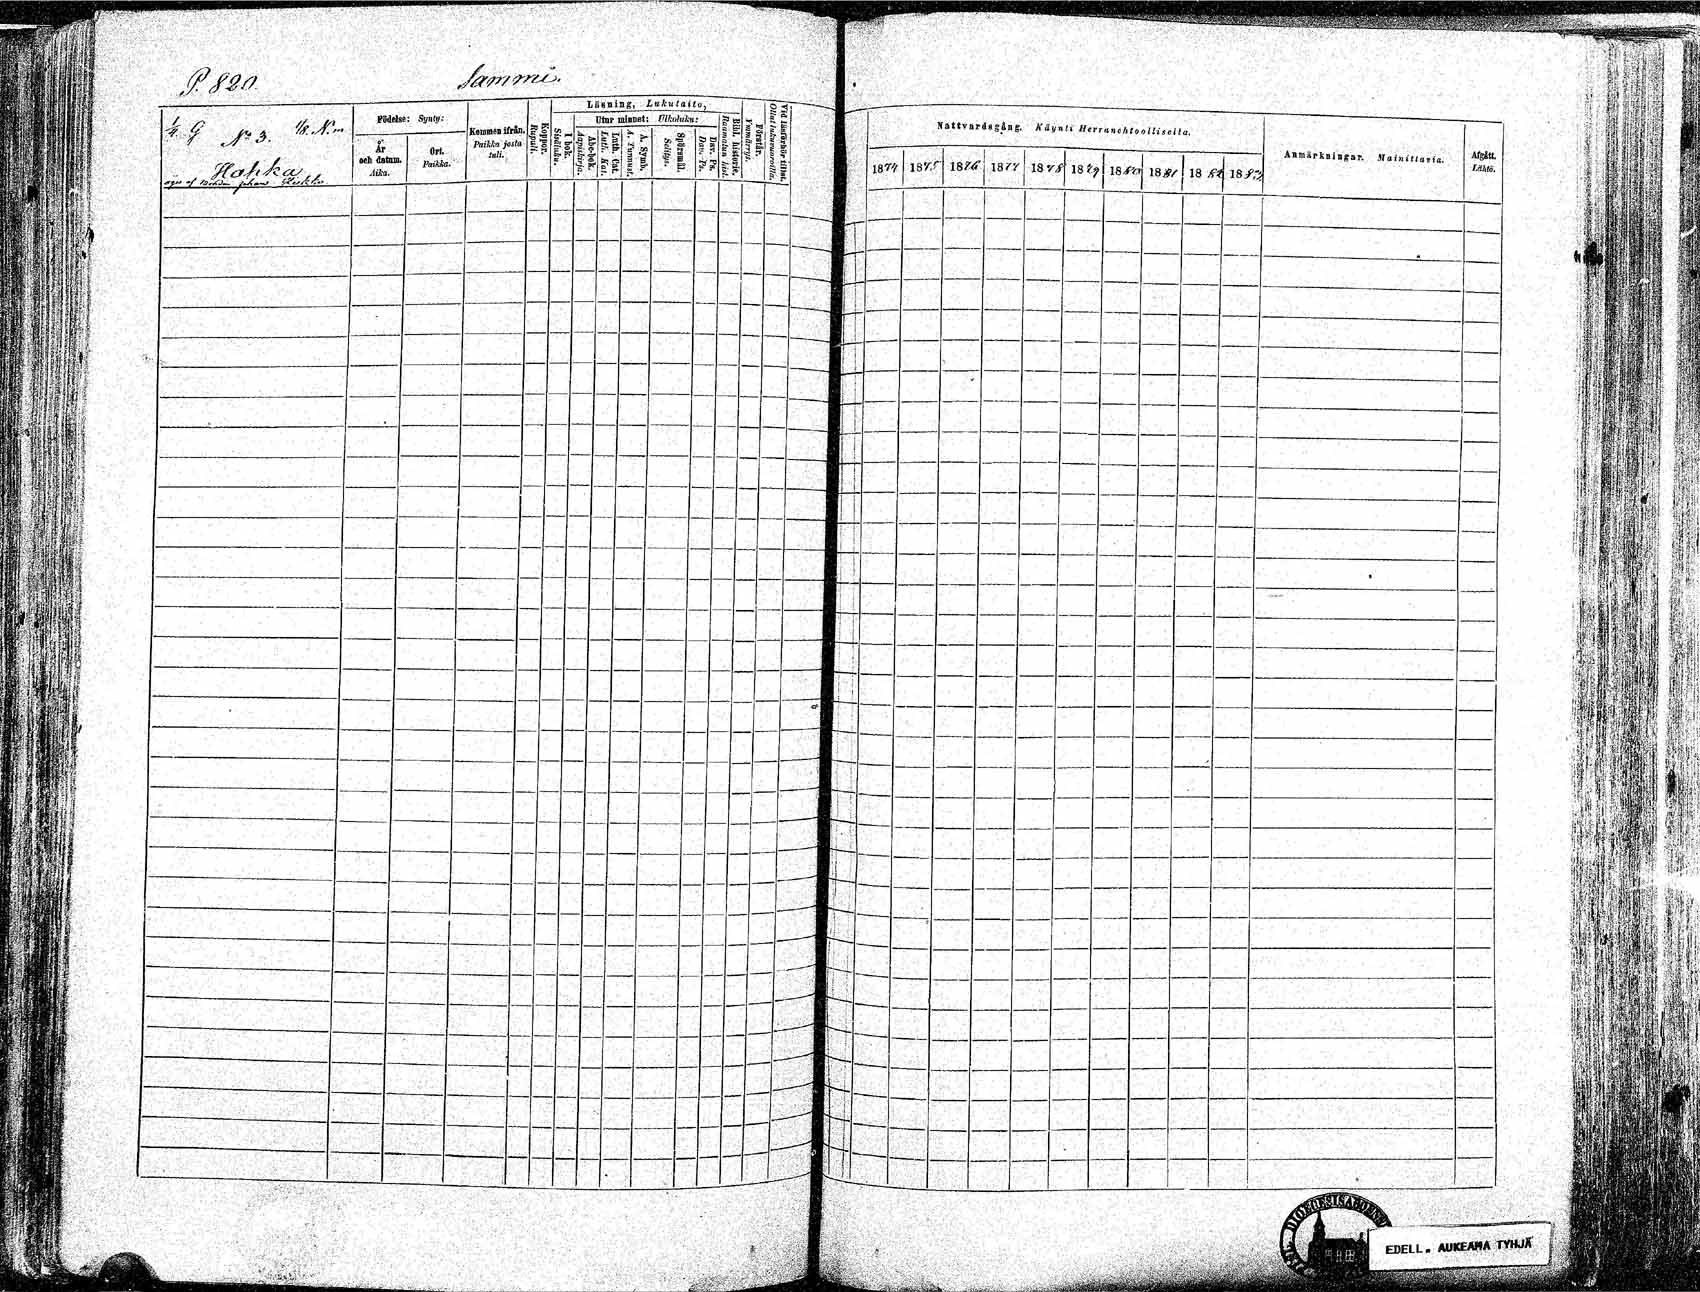 P. 820.
Sammi.
1/4 G No 3. 1/8 N:m
Hahka
äges af Johan
Födelse: Synty:
År och datum. Aika.
Ort. Paikka.
Kommen ifrån. Paikka josta tuli.
Koppor. Rupuli.
Läsning, Lukutaito,
I bok. Sisäluku.
Utur minnet: Ulkoluku:
Abc-bok. Aapiskirja.
Luth. Cat. Luth. Kat.
A. Symb. A. Tunnust.
Spörsmål. Selitys.
Dav. Ps. Dav. Ps.
Bibl. historie. Raamatun hist.
Förstår. Ymmärrys.
Vid läsförhör tillst. Ollut lukuvuorolla.
Nattvardsgång. Käynti Herranehtoollisella.
1874 1875 1876 1877 1878 1879 1880 1881 1882 1883
Anmärkningar. Mainittavia.
Afgått. Lähtö.
EDELL. AUKEAMA TYHJÄ